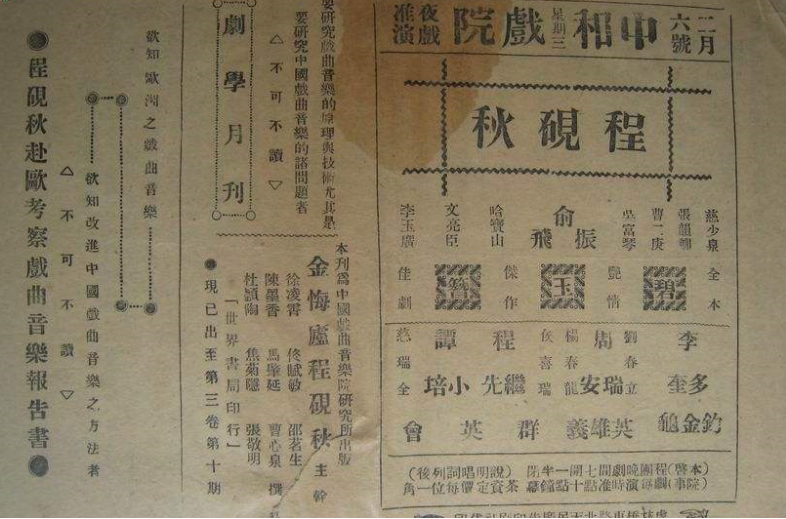 二月六號
中和戲院
星期三
夜戲准演
程硯秋
慈少泉
曹二庚
吳富琴
俞振飛
哈寶山
文亮臣
李玉廣
全本
碧
艷情
玉
傑作
簪
佳劇
李多奎
劉春立
周瑞安
楊春龍
侯喜瑞
程繼先
譚小培
慈瑞全
釣金龜
英雄義
群英會
(本院啓事)程劇團每晚演劇時間準七點開十一點半鐘閉幕
(說明唱詞列後)
茶資定價每位一角
要研究戲曲音樂的原理與技術尤其是
要研究中國戲曲音樂的諸問題者
△不可不讀▽
劇學月刊
本刊爲中國戲曲音樂院研究所出版
金悔廬程硯秋主幹
徐凌霄 佟賦敏 邵茗生
陳墨香 馬肇延 曹心泉 撰
杜穎陶 焦菊隱 張敬明
「世界書局印行」
●現已出至第三卷第十期
欲知歐洲之戲曲音樂
欲知改進中國戲曲音樂之方法者
△不可不讀▽
●程硯秋赴歐考察戲曲音樂報告書●